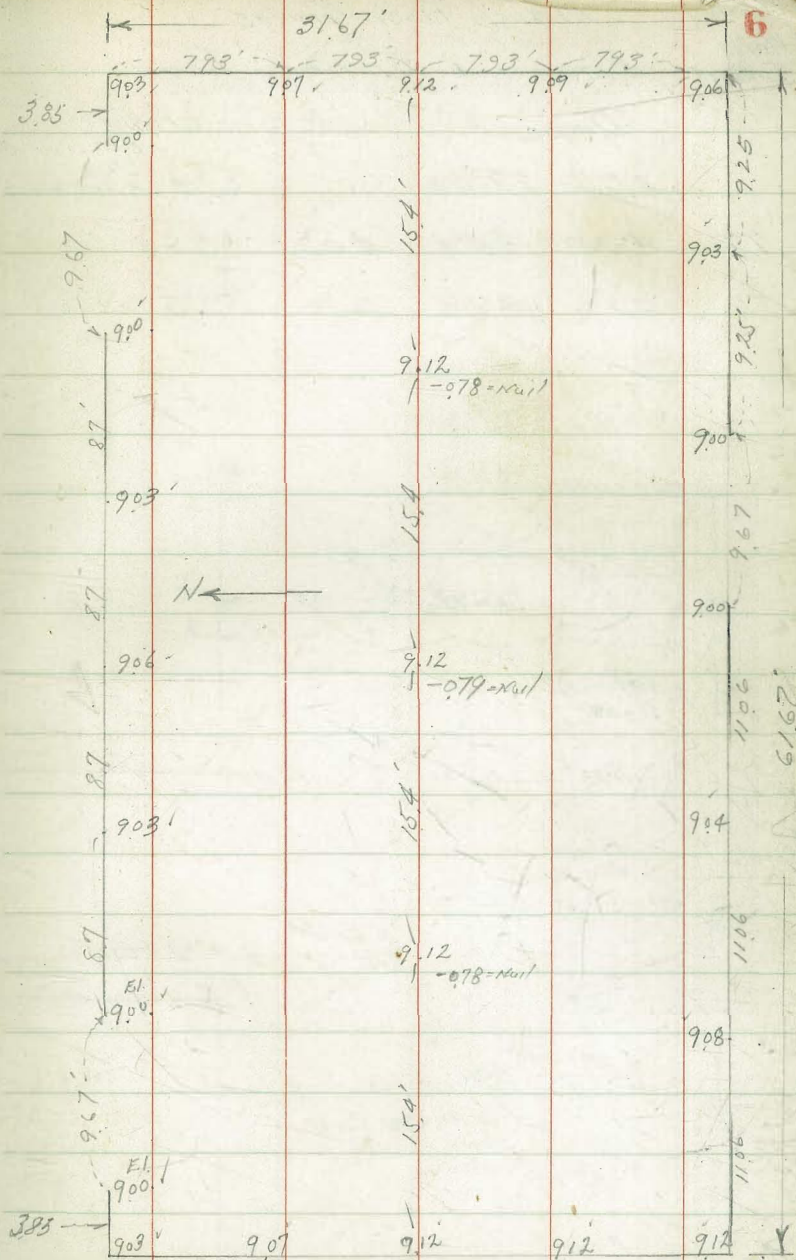 31.67'
6
793' 793' 793' 793'
903 907 9.12 909 906
3.85
900
9.25
15.4'
903
9.67
900'
9.25'
9.12
-078=Nail
87'
900
903'
15.4
9.67
N
87
900
906
9.12
-079=Nail
11.06
61.67'
87
15.4'
903'
904
87
11.06
9.12
El.
-078=Nail
900
908
9.67'
15.4'
El.
11.06
900
3.85
903' 907 9.12 912 912